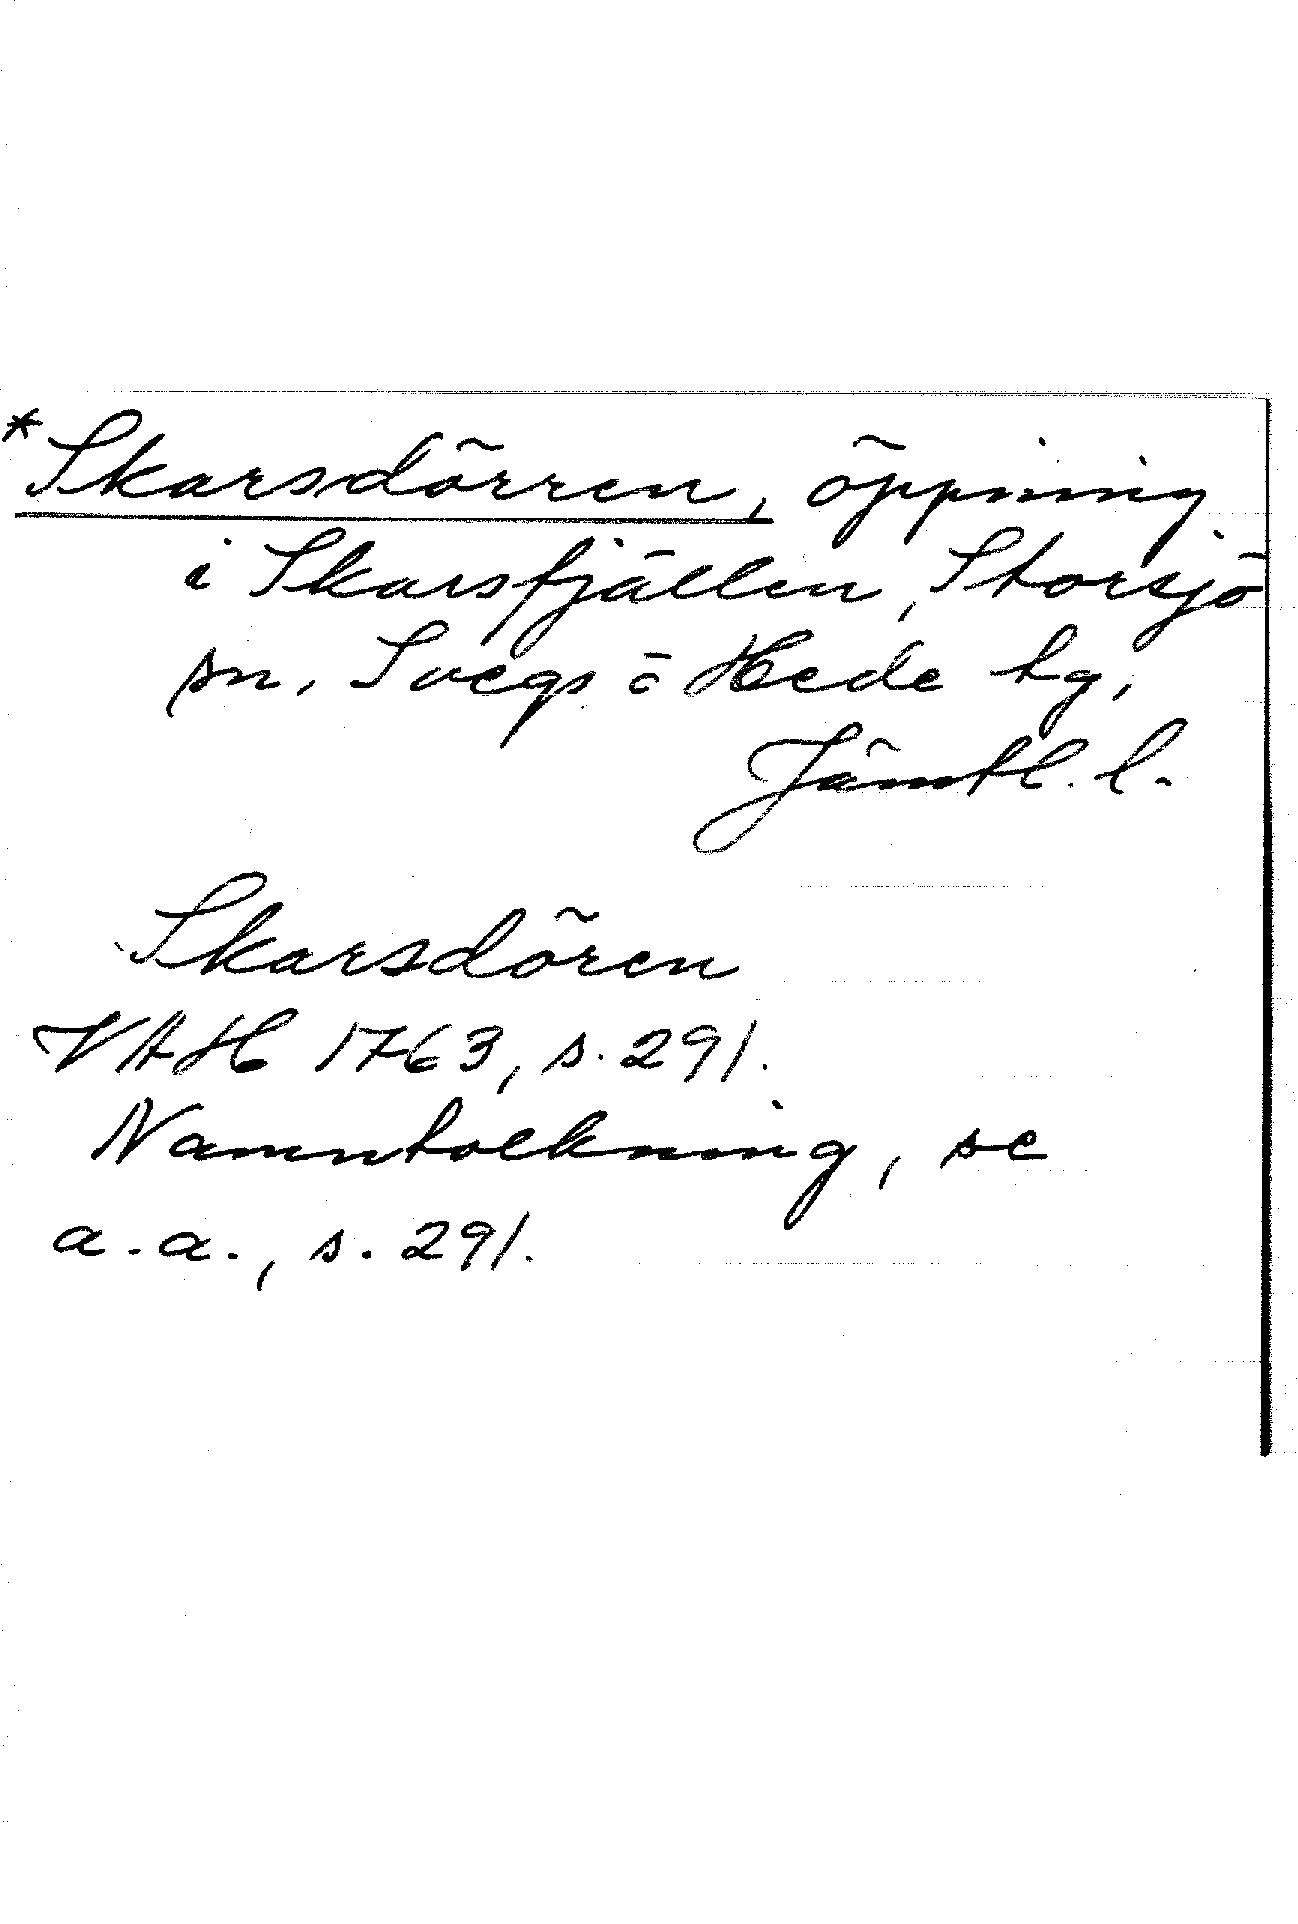 *Skarsdörren, öppning
i Skarsfjällen, Storsjö
sn, Svegs o Hede tg,
Jämtl. l.
Skarsdören
VAH 1763, s. 291.
Namntolkning, se
a.a., s. 291.